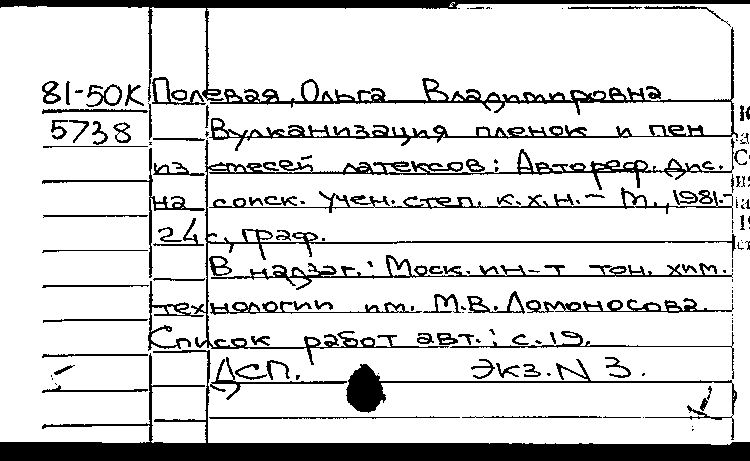 81-50К Полевая, Ольга Владимировна
5738 Вулканизация пленок и пен
из смесей латексов: Автореф. дис.
на соиск. учен. степ. к.х.н. - М., 1981.-
24с, граф.
В надзаг.: Моск. ин-т тон. хим.
технологии им. М.В. Ломоносова.
Список работ авт.: с.19.
ДСП. Экз. N 3.